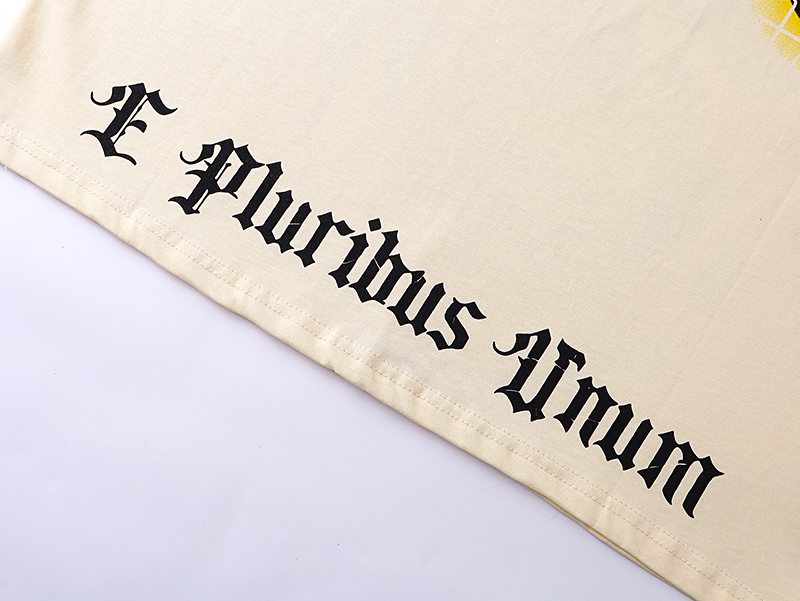 E Pluribus Unum